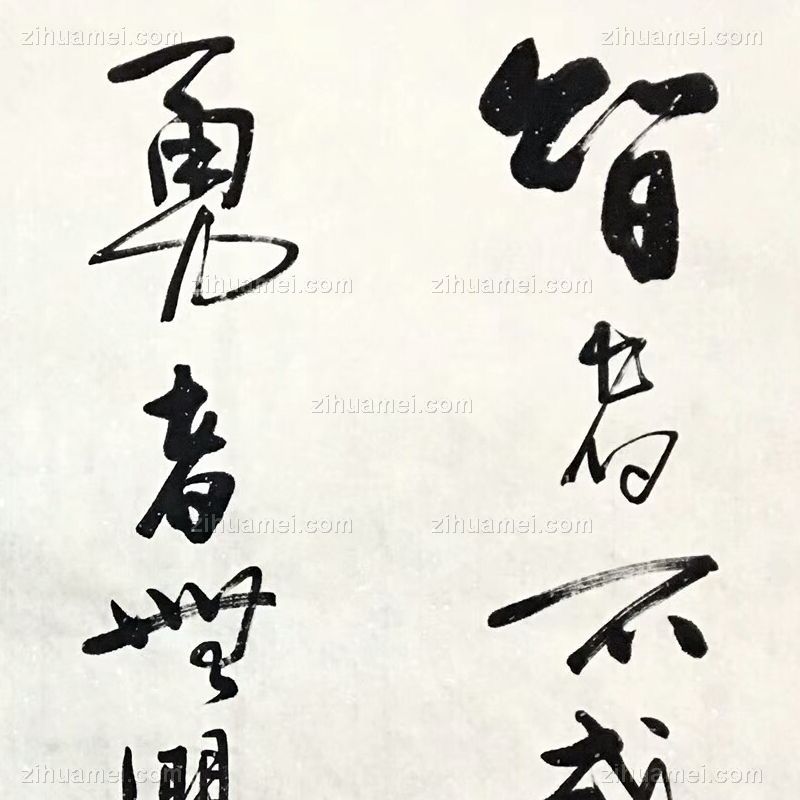 智者不惑
勇者無懼
zihuamei.com
zihuamei.com
zihuamei.com
zihuamei.com
zihuamei.com
zihuamei.com
zihuamei.com
zihuamei.com
zihuamei.com